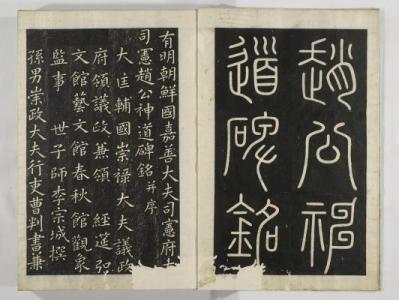 趙公神
道碑銘
有明朝鮮國嘉善大夫司憲府大
司憲趙公神道碑銘 并序
大匡輔國崇祿大夫議政
府領議政兼領 經筵弘
文館藝文館春秋館觀象
監事 世子師李宗城撰
孫男崇政大夫行吏曹判書兼